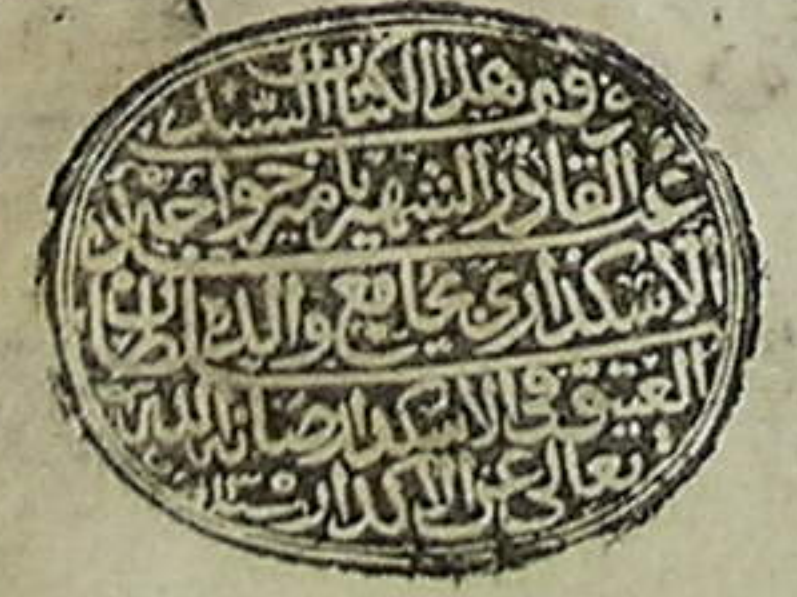 وقف هذا الكتاب السيد
عبد القادر الشهير بامير خواجه
الاسكداري بجامع والدة سلطان
العتيق في الاسكدار صانه الله
تعالى عن الاكدار سنة